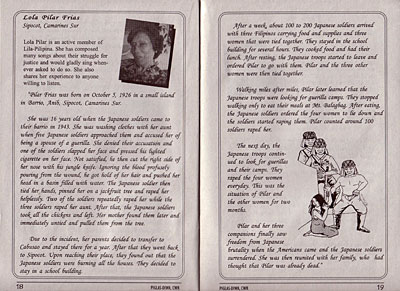 Lola Pilar Frias
Sipocot, Camarines Sur
Lola Pilar is an active member of
Lila-Pilipina. She has composed
many songs about their struggle for
justice and would gladly sing when-
ever asked to do so. She also
shares her experience to anyone
willing to listen.
"Pilar Frias was born on October 5, 1926 in a small island
in Barrio, Anib, Sipocot, Camarines Sur.
She was 16 years old when the Japanese soldiers came to
their barrio in 1943. She was washing clothes with her aunt
when five Japanese soldiers approached them and accused her of
being a spouse of a guerilla. She denied their accusation and
one of the soldiers slapped her face and pressed his lighted
cigarette on her face. Not satisfied, he then cut the right side of
her nose with his jungle knife. Ignoring the blood profusely
pouring from the wound, he got hold of her hair and pushed her
head in a basin filled with water. The Japanese soldier then
tied her hands, pinned her on a jackfruit tree and raped her
helplessly. Two of the soldiers repeatedly raped her while the
three soldiers raped her aunt. After that, the Japanese soldiers
took all the chickens and left. Her mother found them later and
immediately untied and pulled them from the tree.
Due to the incident, her parents decided to transfer to
Cabusao and stayed there for a year. After that they went back
to Sipocot. Upon reaching their place, they found out that the
Japanese soldiers were burning all the houses. They decided to
stay in a school building.
18
After a week, about 100 to 200 Japanese soldiers arrived
with three Filipinos carrying food and supplies and three
women that were tied together. They stayed in the school
building for several hours. They cooked food and had their
lunch. After eating, the Japanese troops started to leave and
ordered Pilar to go with them. Pilar and the three other
women were then tied together.
Walking miles after miles, Pilar later learned that the
Japanese troops were looking for guerilla camps. They stopped
walking only to eat their meals at Mt. Balagbag. After eating,
the Japanese soldiers ordered the four women to lie down and
the soldiers started raping them. Pilar counted around 100
soldiers raped her.
The next day, the
Japanese troops contin-
ued to look for guerillas
and their camps. They
raped the four women
everyday. This was the
situation of Pilar and
the other women for two
months.
Pilar and her three
companions finally saw
freedom from Japanese
brutality when the Americans came and the Japanese soldiers
surrendered. She was then reunited with her family, who had
thought that Pilar was already dead."
19